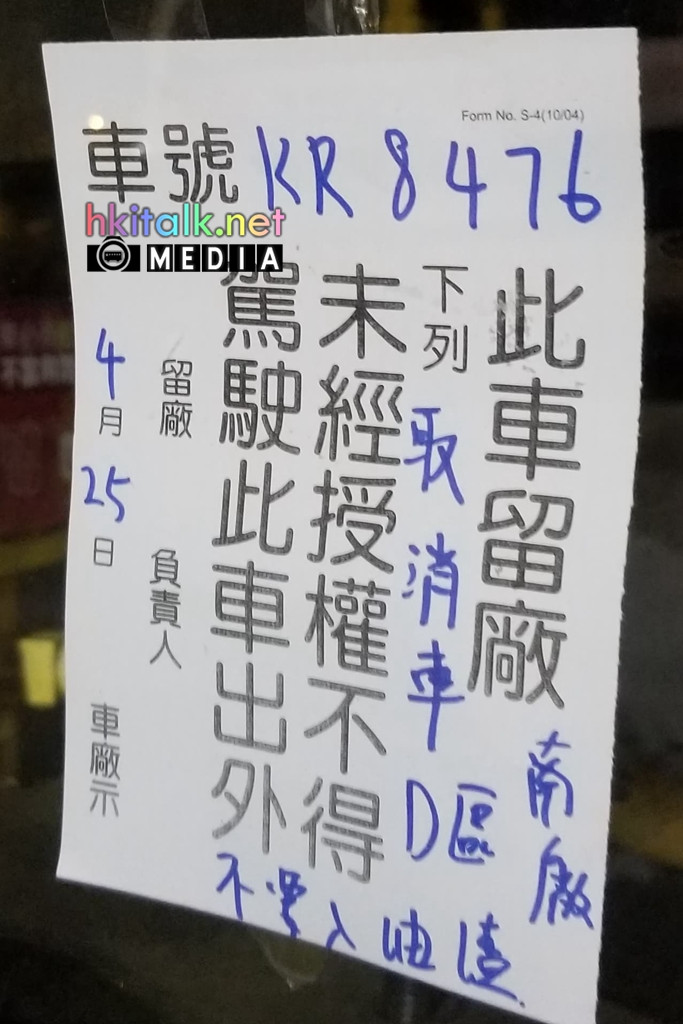 Form No. S-4(10/04)
車號 KR 8476
hkitalk.net
MEDIA
此車留廠 南廠
下列 取消車 D區
未經授權不得
駕駛此車出外
不要入油渣
留廠 負責人
4月25日 車廠示